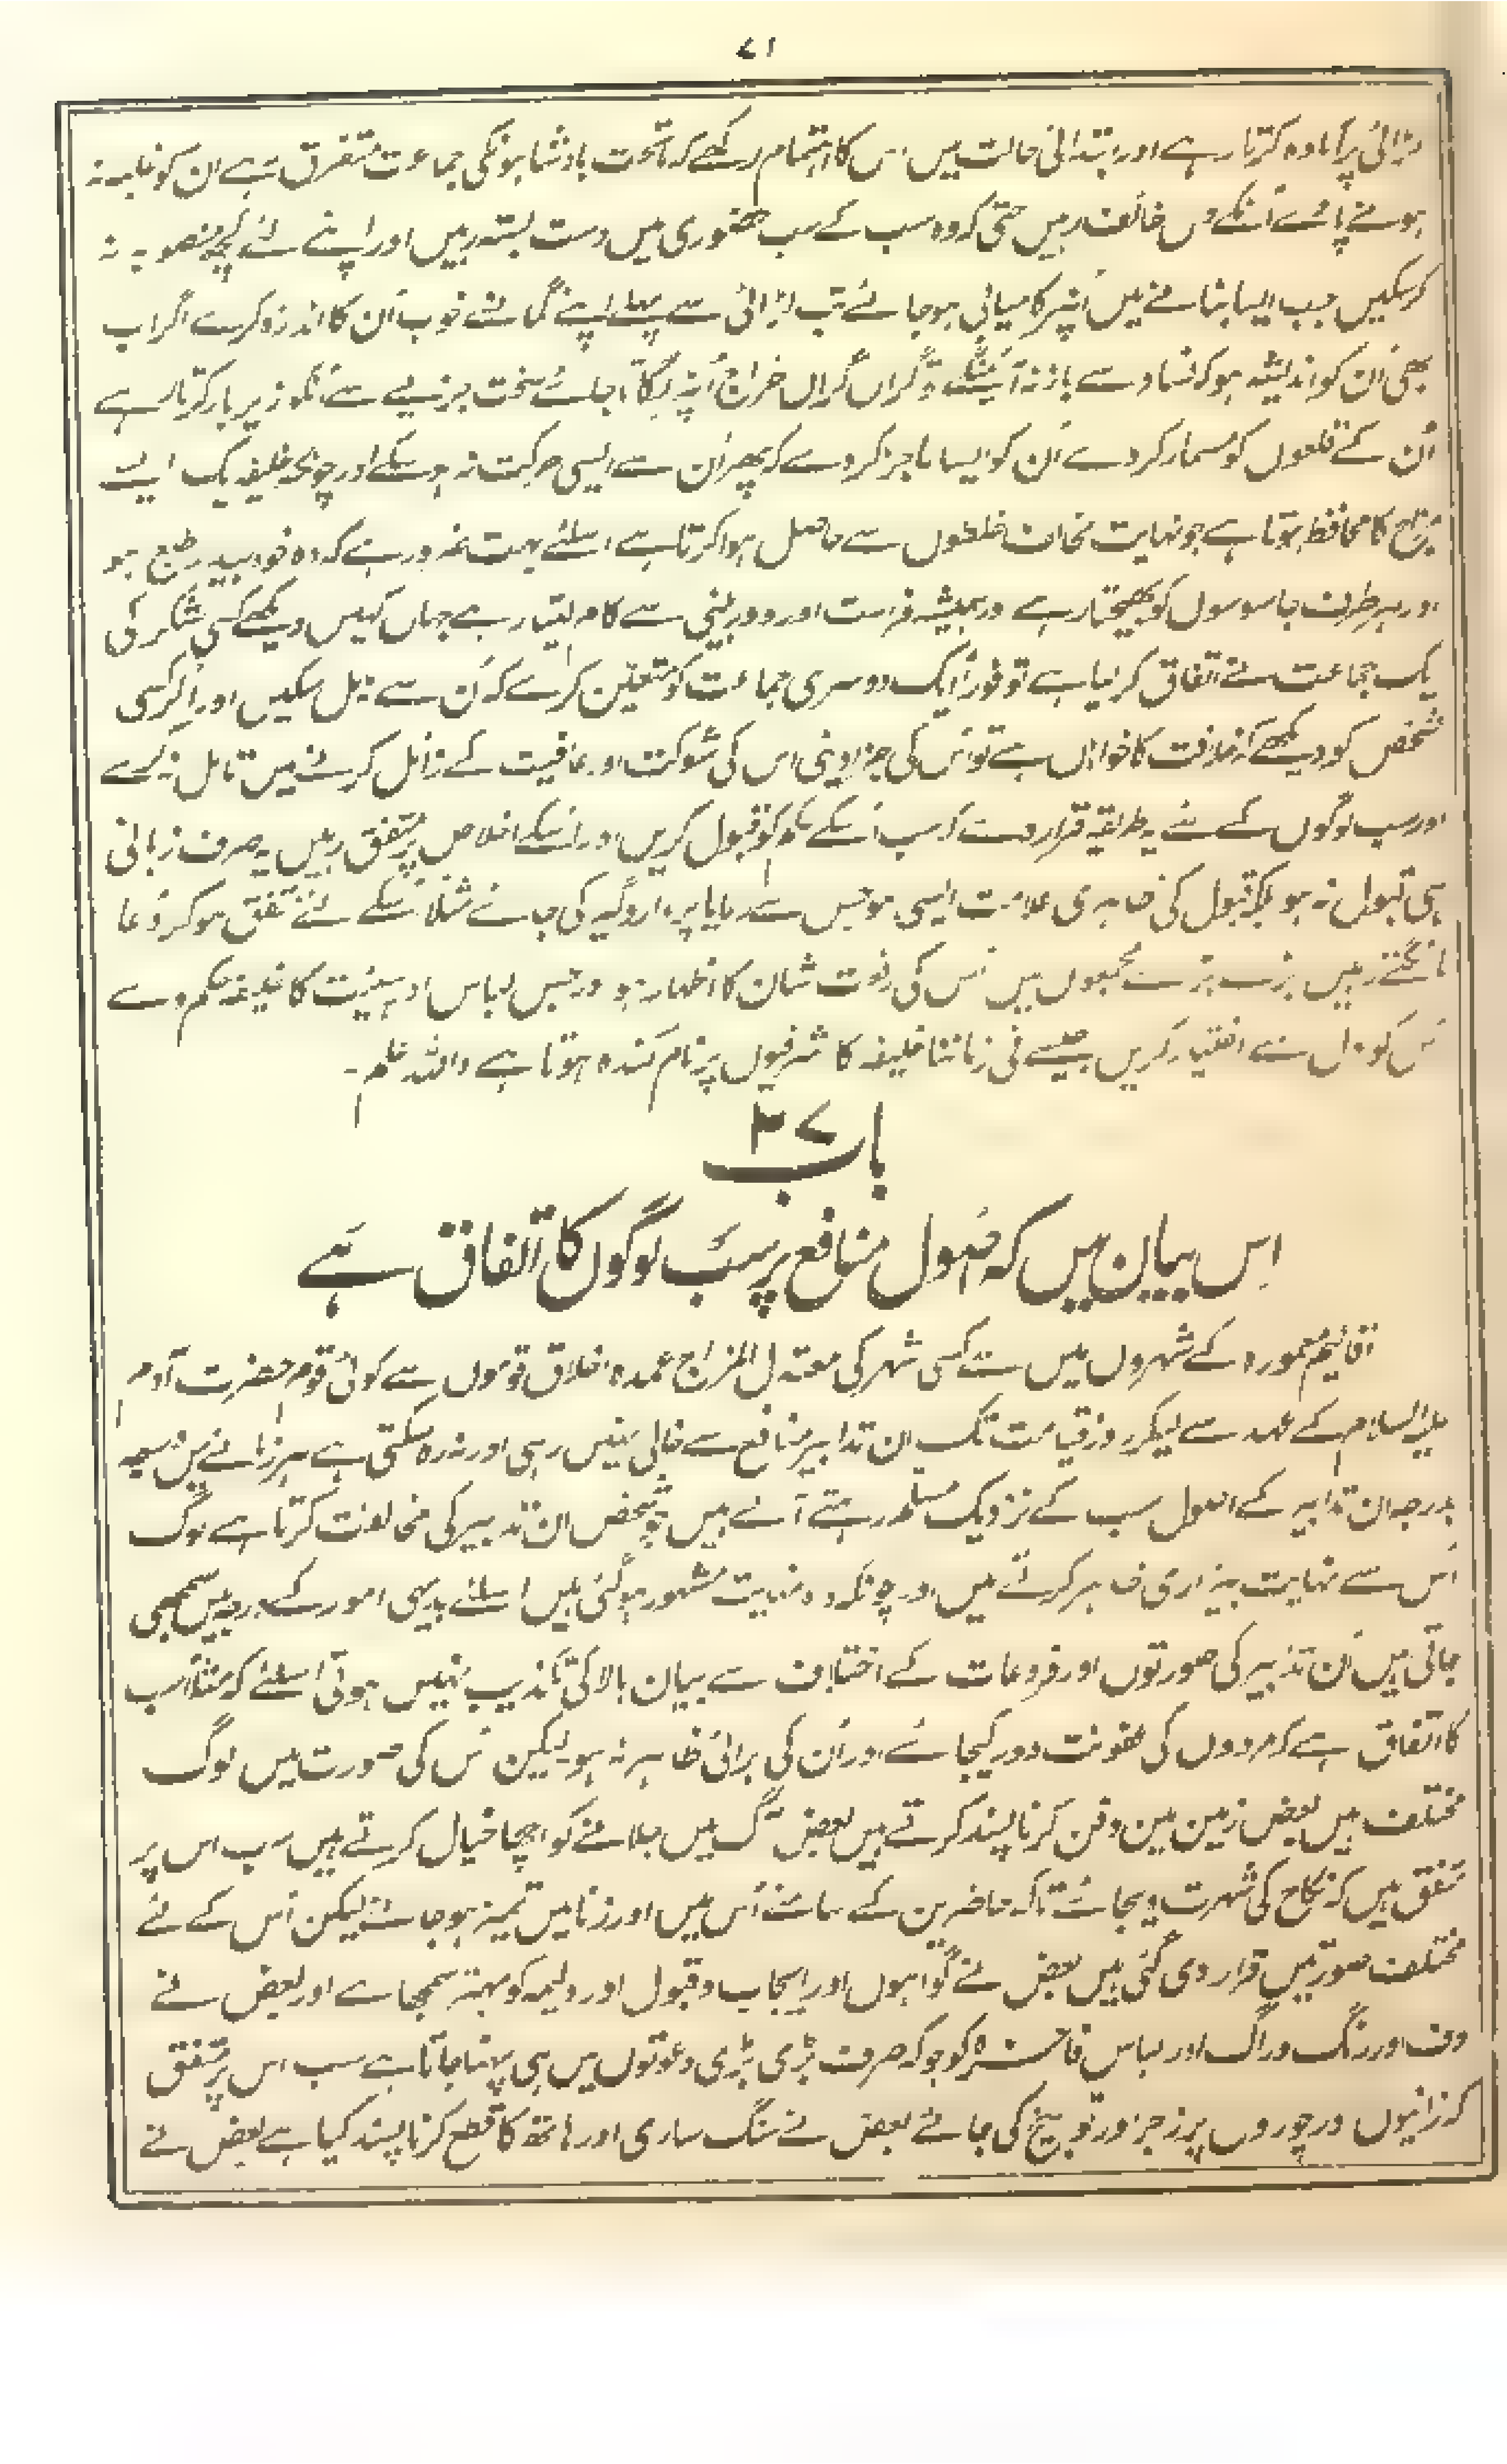 ۷۱
لڑائی پر آمادہ کرتا رہے اور ابتدائی حالت میں اس کا اہتمام رکھے کہ ماتحت بادشاہونکی جماعت متفرق رہے ان کو غلبہ نہ
ہونے پائے اُنکے دل خائف رہیں حتیٰ کہ وہ سب کے سب حضوری میں دست بستہ رہیں اور اپنے لئے کچھ منصوبہ نہ
کرسکیں جب ایسا بنانے میں اُنپر کامیابی ہوجائے تب لڑائی سے پہلے اپنے گمان سے خوب اُن کا اندازہ کرے اگر اب
بھی ان کو اندیشہ ہو کہ فساد سے باز نہ آئینگے تو گراں گراں خراج اُنپر لگاتا جائے سخت جزیے سے اُنکو زیر بار کرتا رہے
اُن کے قلعوں کو مسمار کردے اُن کو ایسا عاجز کردے کہ پھر اُن سے ایسی حرکت نہ ہوسکے اور چونکہ خلیفہ ایک ایسے
مزاج کا محافظ ہوتا ہے جو نہایت مخالف خلطوں سے حاصل ہوا کرتا ہے اسلئے بہت ضرور ہے کہ وہ خود بیدار طبع ہو
اور ہر طرف جاسوسوں کو بھیجتا رہے اور ہمیشہ فراست اور دوربینی سے کام لیتا رہے جہاں کہیں دیکھے کسی لشکر کی
ایک جماعت نے اتفاق کر لیا ہے تو فوراً ایک دوسری جماعت کو متعین کرے کہ اُن سے مل سکیں اور اگر کسی
شخص کو دیکھے کہ خلافت کا خواہاں ہے تو اُس کی اس کی شوکت اور عافیت کے زائل کرنے میں تامل نہ کرے
اور سب لوگوں کے لئے یہ طریقہ قرار دے کہ سب اُسکے حکم کو قبول کریں اور اُسکے اخلاص پر متفق رہیں یہ صرف زبانی
ہی قبول نہ ہو بلکہ قبول کی ظاہری علامت ایسی ہو جس سے رعایا پر داروگیر کی جائے مثلاً اُسکے لئے متفق ہوکر دُعا
مانگتے رہیں بڑے بڑے مجمعوں میں اُس کی رفعت شان کا اظہار ہو اور جس لباس اور ہیئت کا خلیفہ حکم دے
اُس کو دل سے اختیار کریں جیسے فی زماننا خلیفہ کا اشرفیوں پر نام کندہ ہوتا ہے واللہ اعلم۔
باب ۲۷
اِس بیان میں کہ اصول منافع پر سب لوگوں کا اتفاق ہے
اقالیم معمورہ کے شہروں میں سے کسی شہر کی معتدل المزاج عمدہ اخلاق قوموں سے کوئی قوم حضرت آدم
علیہ السلام کے عہد سے لیکر روز قیامت تک ان تدابیر منافع سے خالی نہیں رہی اور نہ رہ سکتی ہے ہر زمانے میں درجہ
بدرجہ ان تدابیر کے اصول سب کے نزدیک مسلم رہتے آئے ہیں جو شخص ان تدابیر کی مخالفت کرتا ہے لوگ
اُس سے نہایت بیزاری ظاہر کرتے ہیں اور چونکہ وہ نہایت مشہور ہوگئی ہیں اسلئے بدیہی امور کے درجہ میں سمجھی
جاتی ہیں اُن تدابیر کی صورتوں اور فروعات کے اختلاف سے بیان بالا کی تکذیب نہیں ہوتی اسلئے کہ مثلاً سب
کا اتفاق ہے کہ مردوں کی عفونت دور کیجائے اور اُن کی برائی ظاہر نہ ہو لیکن اُس کی صورت میں لوگ
مختلف ہیں بعض زمین مین دفن کرنا پسند کرتے ہیں بعض آگ میں جلانے کو اچھا خیال کرتے ہیں سب اس پر
متفق ہیں کہ نکاح کی شہرت دیجائے تاکہ حاضرین کے سامنے اُس میں اور زنا میں تمیز ہوجائے لیکن اُس کے لئے
مختلف صورتیں قرار دی گئی ہیں بعض نے گواہوں اور ایجاب و قبول اور ولیمہ کو بہتر سمجھا ہے اور بعض نے
دف اور رنگ و راگ اور لباس فاخرہ کو جو کہ صرف بڑی بڑی دعوتوں میں ہی پہنا جاتا ہے سب اس پر متفق
کہ زانیوں اور چوروں پر زجر اور توبیخ کی جائے بعض نے سنگ ساری اور ہاتھ کا قطع کرنا پسند کیا ہے بعض نے